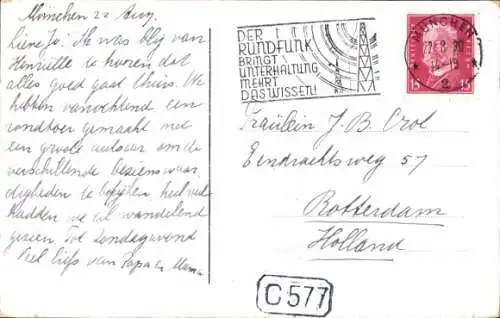 München 22 Aug.
Lieve Jo! Ik was blij van
Henriëtte te hooren dat
alles goed gaat thuis. We
hebben vanochtend een
rondtoer gemaakt met
een groote autocar om de
verschillende bezienswaar
digheden te bekijken heel veel
hadden we al wandelend
gezien. Tot Zondagavond
Veel liefs van Papa en Mama
DER
RUNDFUNK
BRINGT
UNTERHALTUNG,
MEHRT
DAS WISSEN!
MÜNCHEN
22.8.30
2
15 15
Fräulein J. B. Crol
Eendrachtsweg 57
Rotterdam
Holland
C577